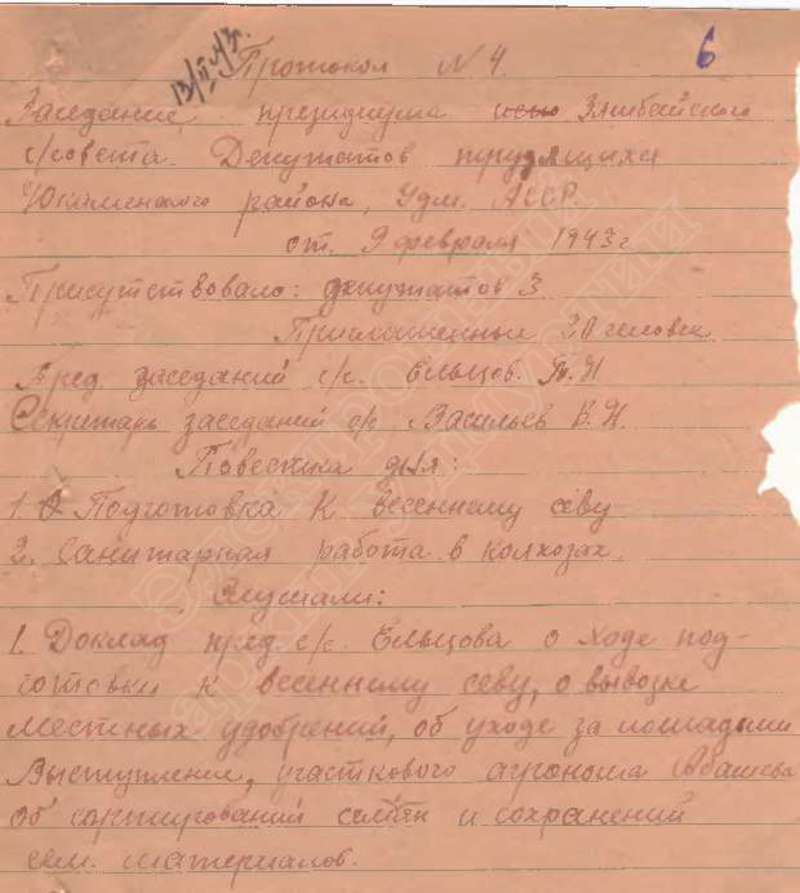 6
13/II 43г.
Протокол N 4.
Заседание президиума Зямбайского
с/совета Депутатов трудящихся
Юкаменского района, Удм. АССР.
от 9 февраля 1943 г
Присутствовало: депутатов 3
Приглашенные 20 человек
Пред. заседаний с/с. Ельцов. П.Н
Секретарь заседаний с/с Васильев В.Н.
Повестка дня:
1. Подготовка к весенному севу
2. Санитарная работа в колхозах.
Слушали:
1. Доклад пред. с/с. Ельцова о ходе под-
готовки к весенному севу, о вывозке
местных удобрений, об уходе за лошадьми
Выступление, участкового агронома Абашева
об сортирований семян и сохранений
сем. материалов.
Электронный
архив Удмуртии